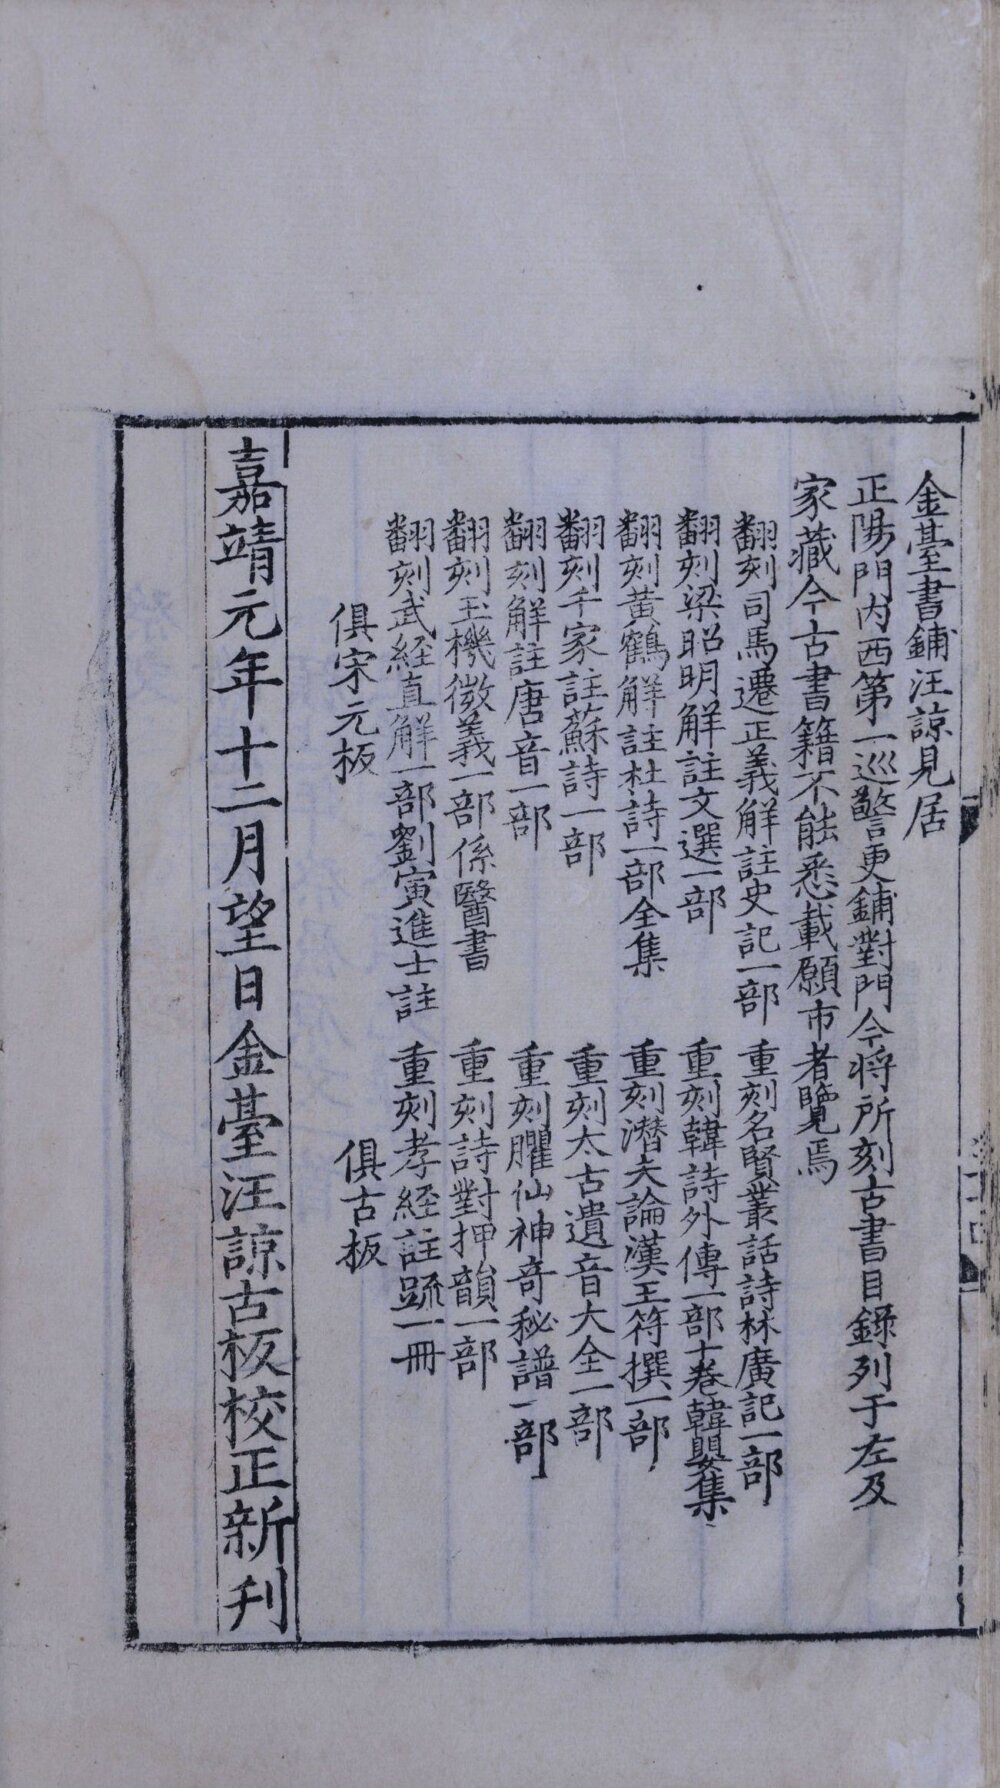 金臺書鋪汪諒見居
正陽門內西第一巡警更鋪對門今將所刻古書目錄列于左及
家藏今古書籍不能悉載願市者覽焉
翻刻司馬遷正義解註史記一部
重刻名賢叢話詩林廣記一部
翻刻梁昭明解註文選一部
重刻韓詩外傳一部十卷韓嬰集
翻刻黃鶴解註杜詩一部全集
重刻潛夫論漢王符撰一部
翻刻千家註蘇詩一部
重刻太古遺音大全一部
翻刻解註唐音一部
重刻臞仙神奇秘譜一部
翻刻玉機微義一部係醫書
重刻詩對押韻一部
翻刻武經直解一部劉寅進士註
重刻孝經註疏一冊
俱宋元板
俱古板
嘉靖元年十二月望日金臺汪諒古板校正新刊